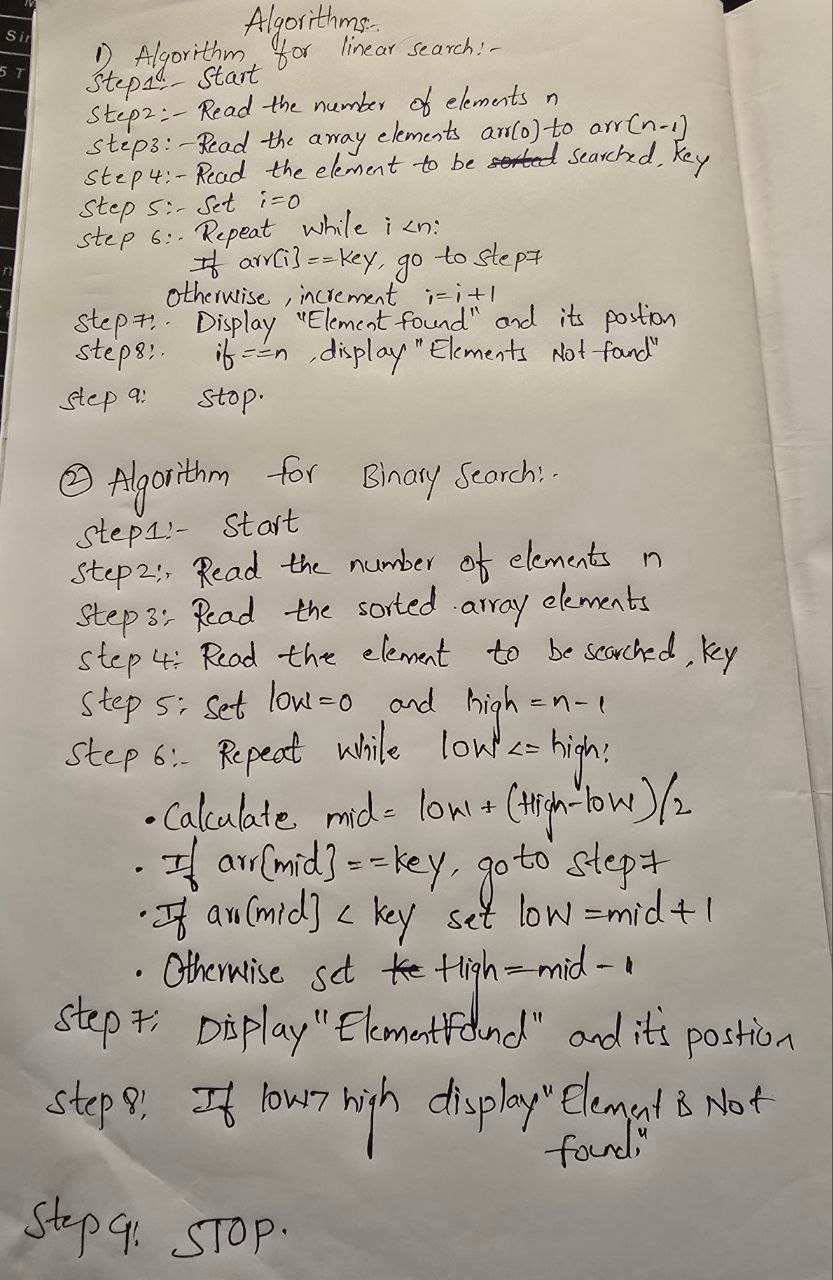 Algorithms:-
1) Algorithm for linear search:-
Step1:- Start
Step2:- Read the number of elements n
Step3:- Read the array elements arr(0) to arr[n-1]
Step 4:- Read the element to be sorted searched, key
Step 5:- Set i=0
Step 6:- Repeat while i <n:
If arr[i]==key, go to step7
Otherwise, increment i=i+1
Step 7:- Display "Element found" and its postion
Step8:- if ==n, display "Elements Not found"
Step 9: Stop.
② Algorithm for Binary Search:-
Step1:- Start
Step2:- Read the number of elements n
Step 3:- Read the sorted array elements
Step 4:- Read the element to be searched, key
Step 5:- Set low=0 and high=n-1
Step 6:- Repeat while low<=high:
• Calculate mid= low+(High-low)/2
• If arr[mid]==key, goto step7
• If arr[mid] < key set low=mid+1
• Otherwise set ke High=mid-1
Step 7: Display "Element found" and it's postion
Step 8: If low> high display "Element is Not
found."
Step 9: STOP.